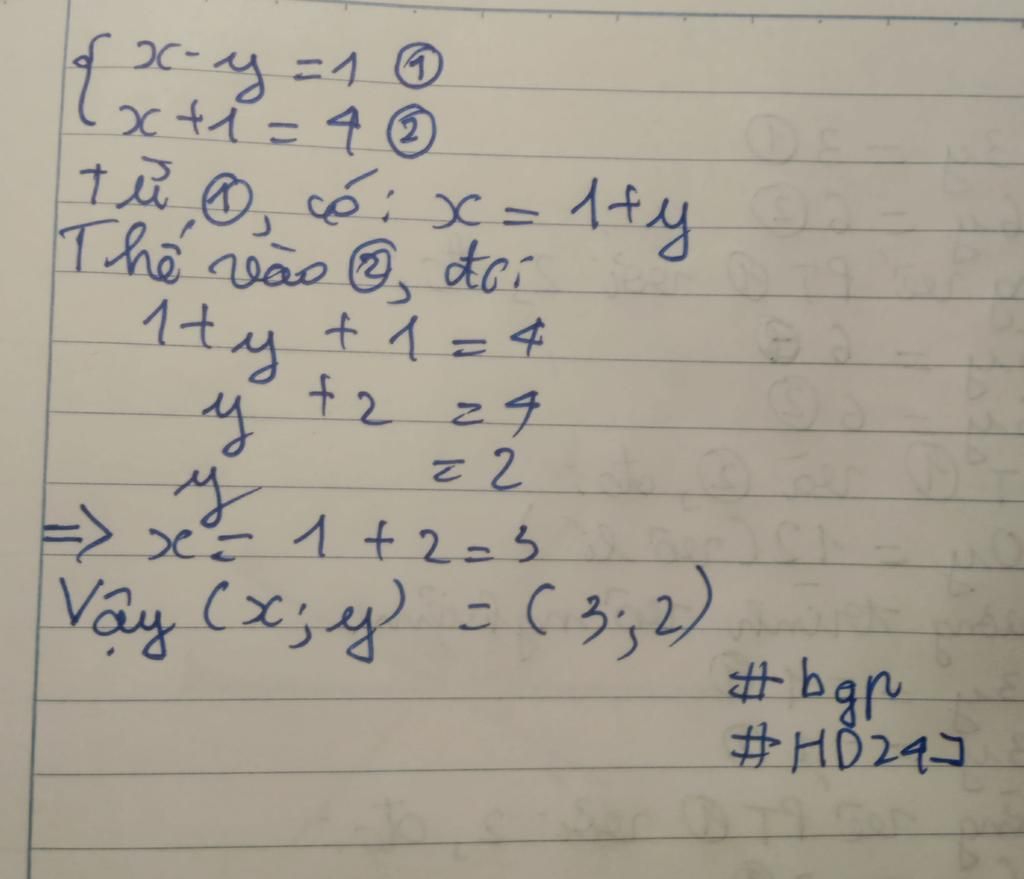 { x - y = 1 ①
x + 1 = 4 ②
từ ①, có: x = 1 + y
Thế vào ②, đc:
1 + y + 1 = 4
y + 2 = 4
y = 2
=> x = 1 + 2 = 3
Vậy (x; y) = (3; 2)
#bgp
#HD24